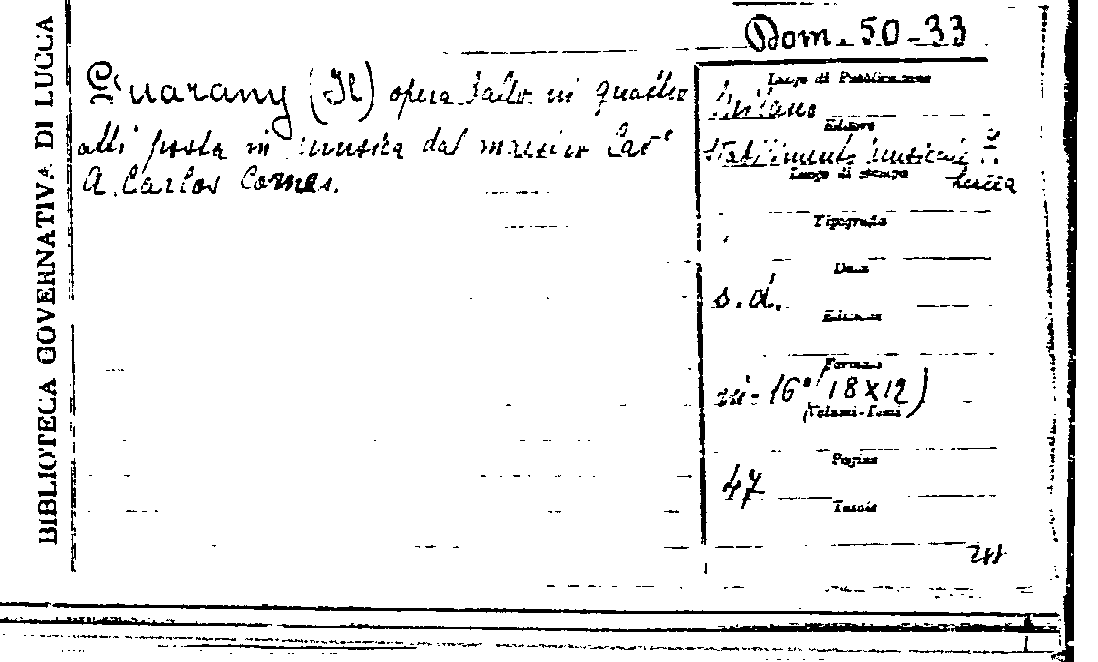 BIBLIOTECA GOVERNATIVA DI LUCCA
Dom. 50-33
Guarany (Il) opera ballo in quattro
atti posta in musica dal maestro Cav.e
A. Carlos Gomes.
Luogo di Pubblicazione
Milano
Editore
Stabilimento musicale F.
Lucca
Luogo di stampa
Tipografia
Data
s.d.
Edizione
Formato
in-16° (18x12)
(Volumi-Tomi)
Pagine
47
Tavole